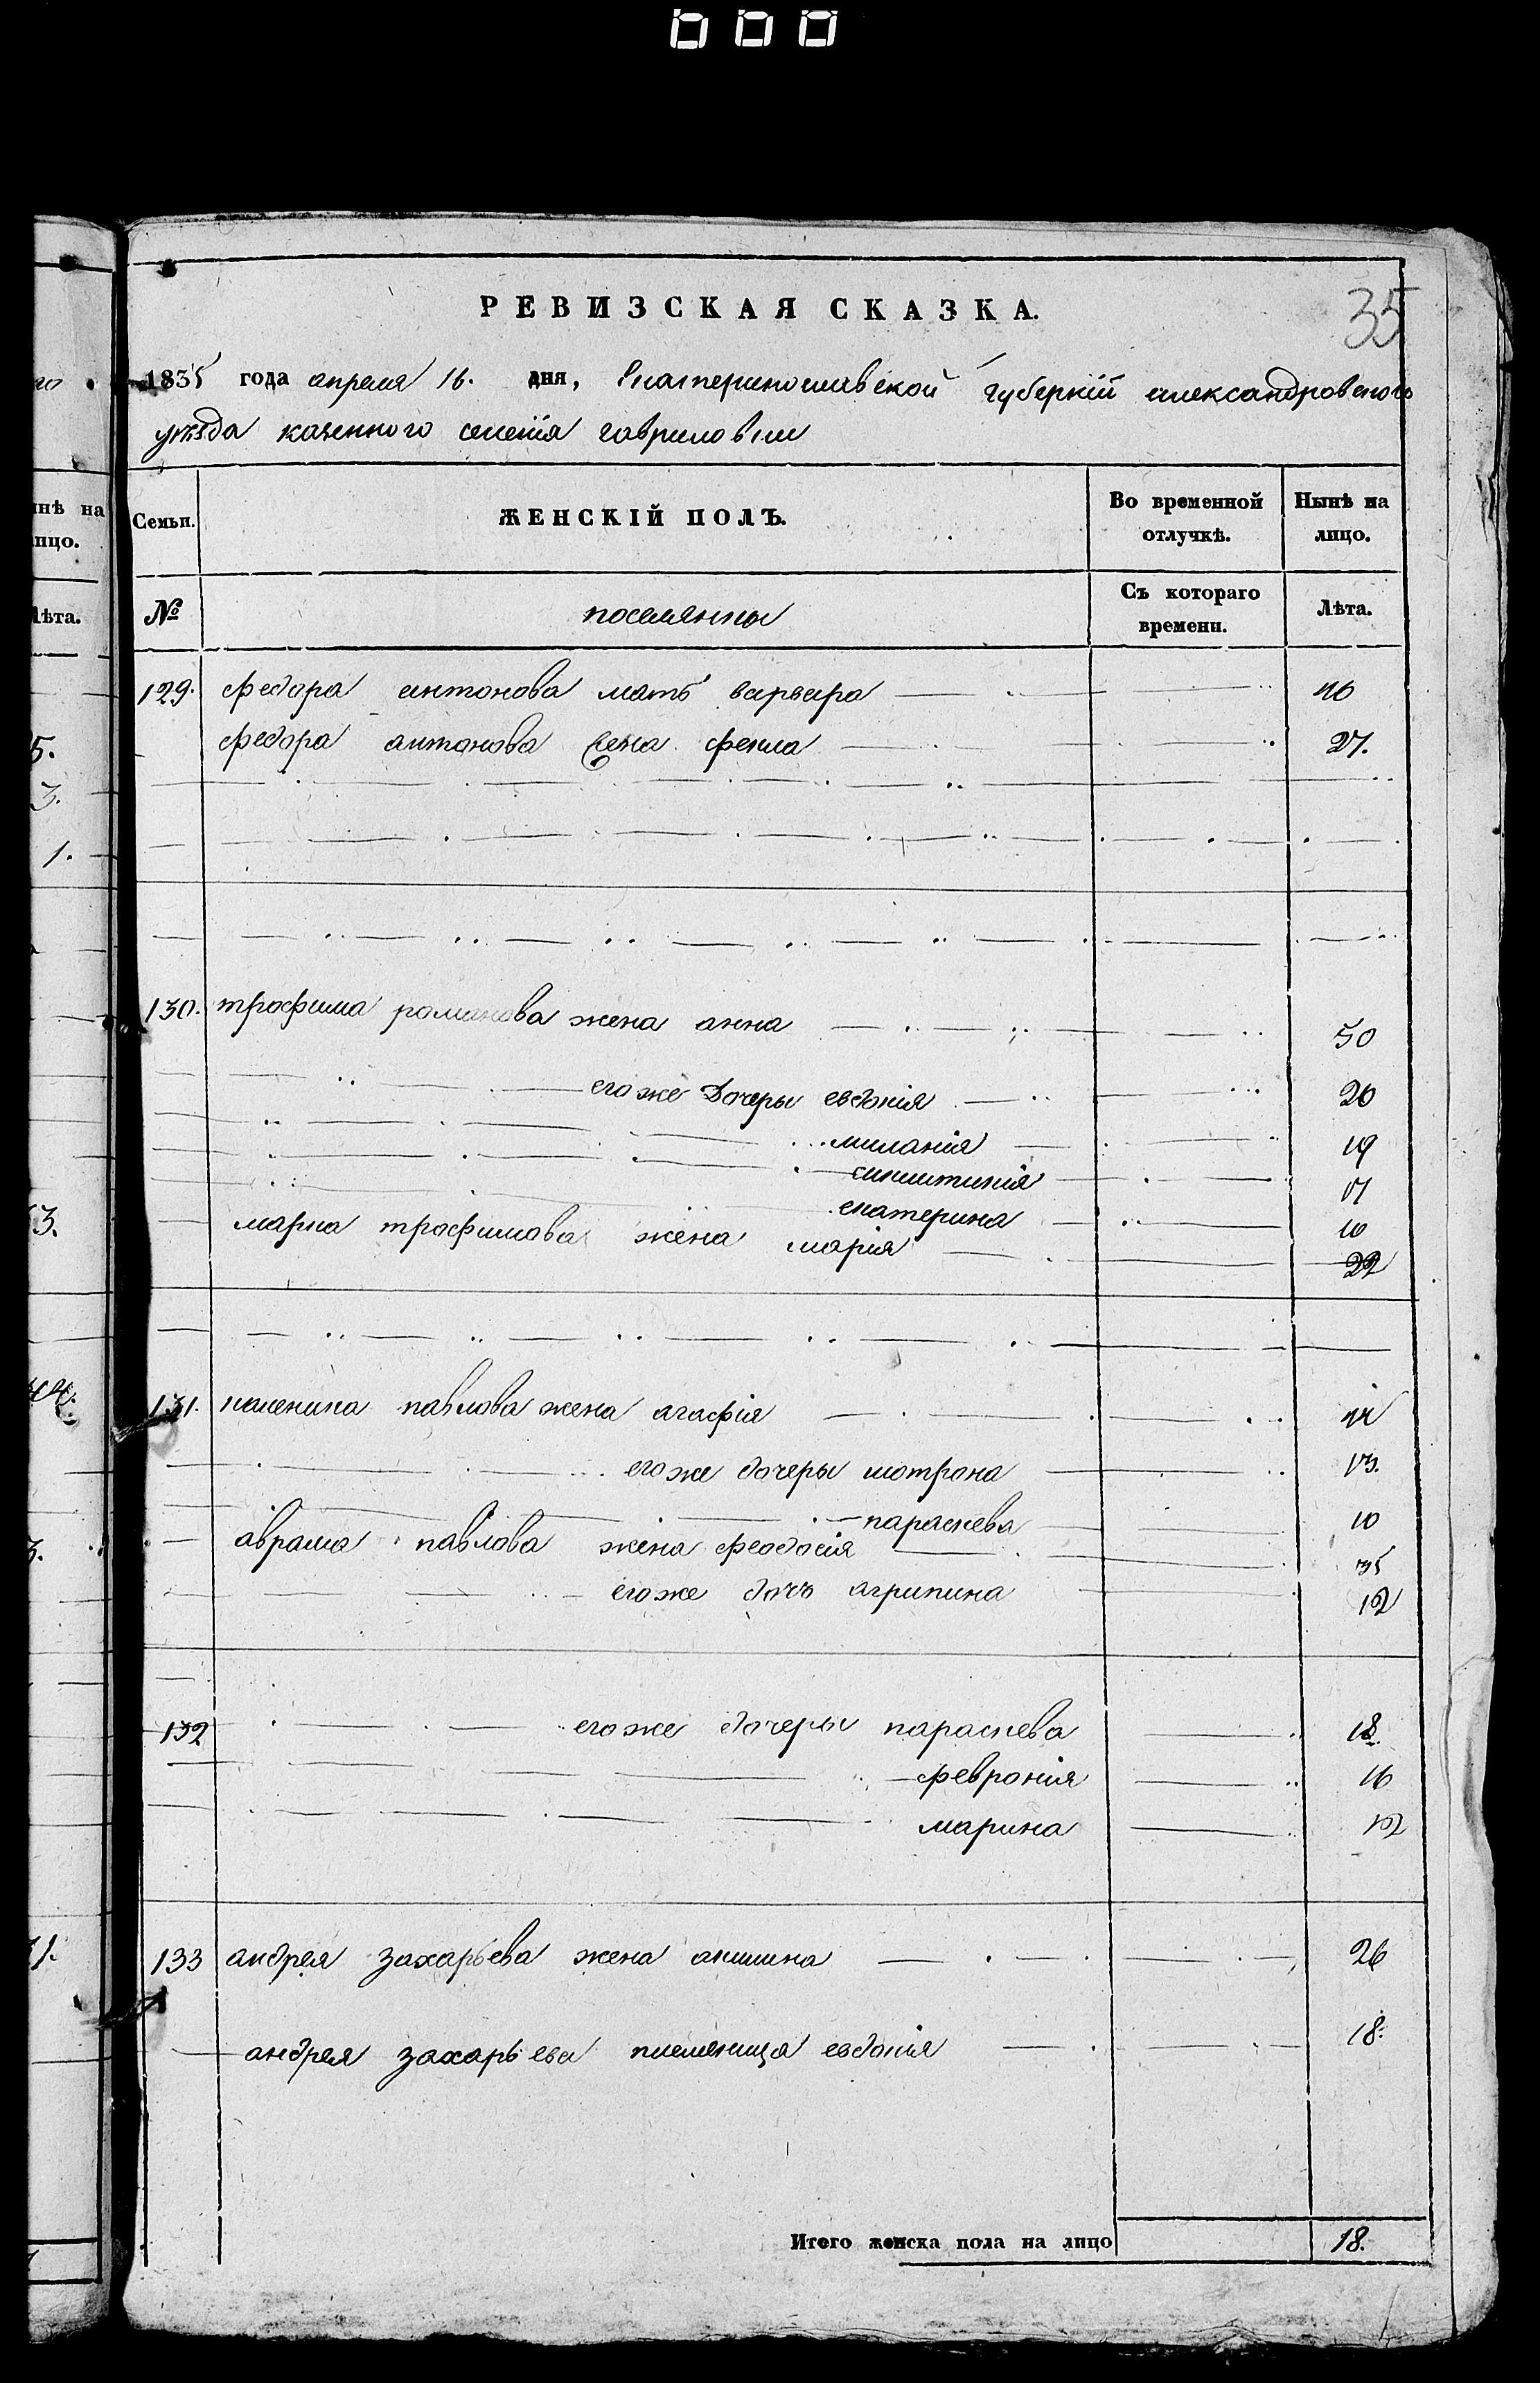 35
РЕВИЗСКАЯ СКАЗКА.
1835 года апреля 16. дня, Екатеринославской губернїи александровского
уѣзда казенного селенїя гавриловки
Семьи.
ЖЕНСКІЙ ПОЛЪ.
Во временной отлучкѣ.
Нынѣ на лицо.
№
поселянки
Съ котораго времени.
Лѣта.
129. федора антонова мать варвара 46
федора антонова жена фекла 27.
130. трофима романова жена анна 50
его же дочеры евдокія 20
миланія 19
екатерина 10
марка трофимова жена марія 22
131. павлова жена агафія
его же дочеры мотрона 13.
параскева 10
аврама павлова жена феодосія 35
его же дочь агрипина 12
132 его же дочеры параскева 18.
феврония 16
марина 12
133 андрея захарьева жена акилина 26
андрея захарьева племеница евдокія 18.
Итого женска пола на лицо 18.